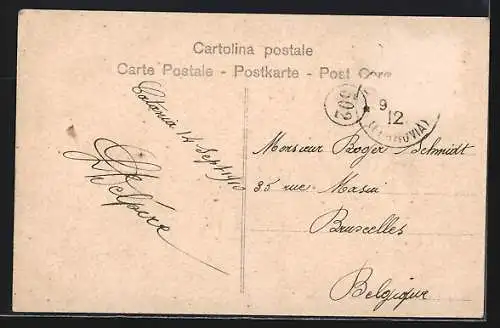 Cartolina postale
Carte Postale - Postkarte - Post Card
Catania 14 Sept 1910
209
9
12
(FERROVIA)
Monsieur Roger Schmidt
35 rue Masui
Bruxelles
Belgique